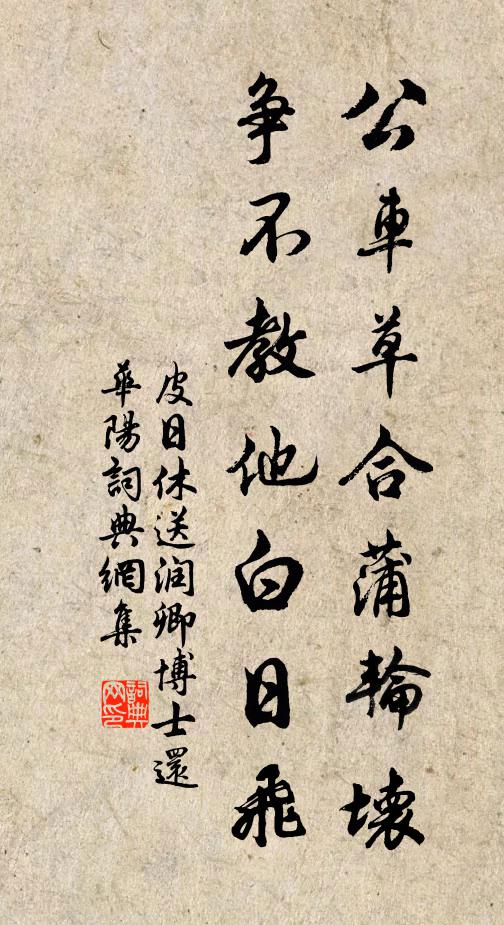 公車草合蒲輪壞
争不教他白日飛
皮日休送润卿博士還
華陽詞典網集
詞典
网印